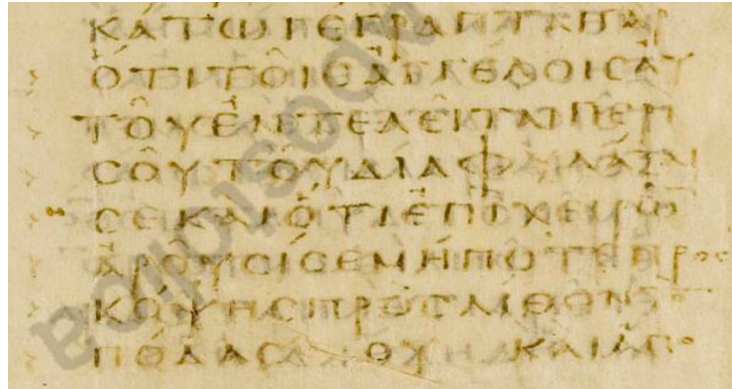 ΚΑΤΩ ΓΕΓΡΑΠΤΑΙ ΓΑΡ
ΟΤΙ ΤΟΙϹ ΑΓΓΕΛΟΙϹ ΑΥ
ΤΟΥ ΕΝΤΕΛΕΙΤΑΙ ΠΕΡΙ
ϹΟΥ ΤΟΥ ΔΙΑΦΥΛΑΞΑΙ
ϹΕ ΚΑΙ ΟΤΙ ΕΠΙ ΧΕΙΡΩ
ΑΡΟΥϹΙ ϹΕ ΜΗΠΟΤΕ ΠΡΟϹ
ΚΟΨΗϹ ΠΡΟϹ ΛΙΘΟΝ ΤΟ
ΠΟΔΑ ϹΟΥ ΚΑΙ ΑΠΟ